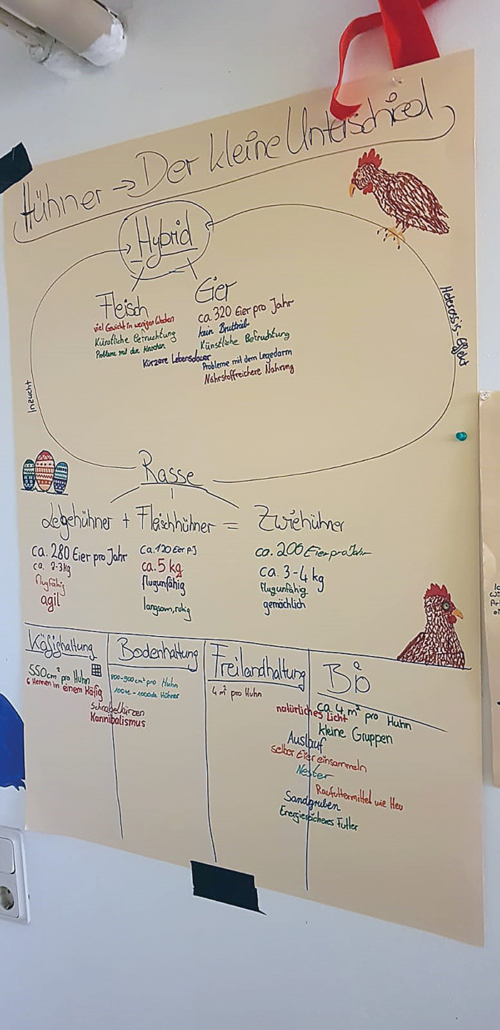 Hühner → Der kleine Unterschied
Hybrid
Fleisch
viel Gewicht in wenigen Wochen
Künstliche Befruchtung
Probleme mit den Knochen
Kürzere Lebensdauer
Eier
ca. 320 Eier pro Jahr
kein Bruttrieb
Künstliche Befruchtung
Probleme mit dem Legedarm
Nährstoffreichere Nahrung
Inzucht
Heterosis-Effekt
Rasse
Legehühner + Fleischhühner = Zwiehühner
ca. 280 Eier pro Jahr
ca. 2-3kg
flugfähig
agil
ca. 120 Eier p.J
ca. 5 kg
flugunfähig
langsam, ruhig
ca. 200 Eier pro Jahr
ca. 3-4 kg
flugunfähig
gemächlich
Käfighaltung
550cm² pro Huhn
6 Hennen in einem Käfig
Bodenhaltung
-900cm² pro Huhn
Hühner
Schnabelkürzen
Kannibalismus
Freilandhaltung
4 m² pro Huhn
Bio
ca. 4 m² pro Huhn
natürliches Licht
kleine Gruppen
Auslauf
selber Eier einsammeln
Nester
Raufuttermittel wie Heu
Sandgruben
Energiereicheres Futter